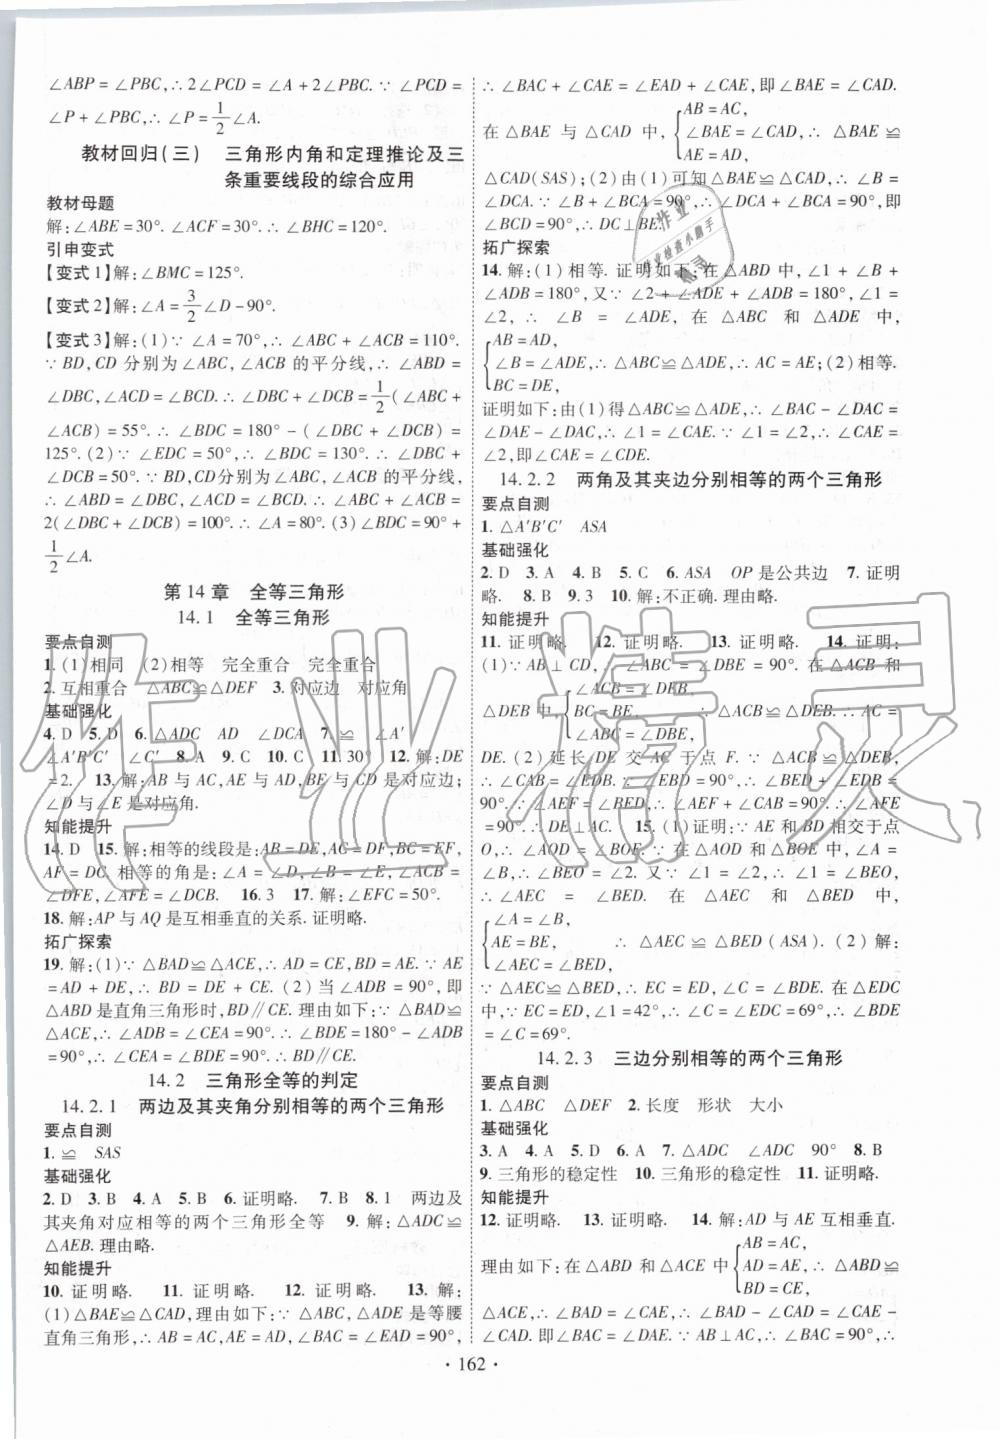 ∠ABP=∠PBC,∴2∠PCD=∠A+2∠PBC.∵∠PCD=
∠P+∠PBC,∴∠P=1/2∠A.
教材回归(三) 三角形内角和定理推论及三
条重要线段的综合应用
教材母题
解:∠ABE=30°.∠ACF=30°.∴∠BHC=120°.
引申变式
【变式1】解:∠BMC=125°.
【变式2】解:∠A=3/2∠D-90°.
【变式3】解:(1)∵∠A=70°,∴∠ABC+∠ACB=110°.
∵BD,CD分别为∠ABC,∠ACB的平分线,∴∠ABD=
∠DBC,∠ACD=∠BCD.∴∠DBC+∠DCB=1/2(∠ABC+
∠ACB)=55°.∴∠BDC=180°-(∠DBC+∠DCB)=
125°.(2)∵∠EDC=50°,∴∠BDC=130°.∴∠DBC+
∠DCB=50°.∵BD,CD分别为∠ABC,∠ACB的平分线,
∴∠ABD=∠DBC,∠ACD=∠BCD.∴∠ABC+∠ACB=
2(∠DBC+∠DCB)=100°.∴∠A=80°.(3)∠BDC=90°+
1/2∠A.
第14章 全等三角形
14.1 全等三角形
要点自测
1.(1)相同 (2)相等 完全重合 完全重合
2.互相重合 △ABC≌△DEF 3.对应边 对应角
基础强化
4.D 5.D 6.△ADC AD ∠DCA 7.≌ ∠A′
∠A′B′C′ ∠C′ 8.A 9.C 10.C 11.30° 12.解:DE
=2. 13.解:AB与AC,AE与AD,BE与CD是对应边;
∠D与∠E是对应角.
知能提升
14.D 15.解:相等的线段是:AB=DE,AC=DF,BC=EF,
AF=DC.相等的角是:∠A=∠D,∠B=∠E,∠ACB=
∠DFE,∠AFE=∠DCB. 16.3 17.解:∠EFC=50°.
18.解:AP与AQ是互相垂直的关系.证明略.
拓广探索
19.解:(1)∵△BAD≌△ACE,∴AD=CE,BD=AE.∵AE
=AD+DE,∴BD=DE+CE.(2)当∠ADB=90°,即
△ABD是直角三角形时,BD∥CE.理由如下:∵△BAD≌
△ACE,∴∠ADB=∠CEA=90°.∴∠BDE=180°-∠ADB
=90°,∴∠CEA=∠BDE=90°.∴BD∥CE.
14.2 三角形全等的判定
14.2.1 两边及其夹角分别相等的两个三角形
要点自测
1.≌ SAS
基础强化
2.D 3.B 4.A 5.B 6.证明略. 7.B 8.1 两边及
其夹角对应相等的两个三角形全等 9.解:△ADC≌
△AEB.理由略.
知能提升
10.证明略. 11.证明略. 12.证明略. 13.解:
(1)△BAE≌△CAD,理由如下:∵△ABC,△ADE是等腰
直角三角形,∴AB=AC,AE=AD,∠BAC=∠EAD=90°,
∴∠BAC+∠CAE=∠EAD+∠CAE,即∠BAE=∠CAD.
在△BAE与△CAD中,{AB=AC,
∠BAE=∠CAD,∴△BAE≌
AE=AD,
△CAD(SAS);(2)由(1)可知△BAE≌△CAD,∴∠B=
∠DCA.∵∠B+∠BCA=90°,∴∠DCA+∠BCA=90°,即
∠BCD=90°,∴DC⊥BE.
拓广探索
14.解:(1)相等.证明如下:在△ABD中,∠1+∠B+
∠ADB=180°,又∵∠2+∠ADE+∠ADB=180°,∠1=
∠2,∴∠B=∠ADE,在△ABC和△ADE中,
{AB=AD,
∠B=∠ADE,∴△ABC≌△ADE,∴AC=AE;(2)相等.
BC=DE,
证明如下:由(1)得△ABC≌△ADE,∴∠BAC-∠DAC=
∠DAE-∠DAC,∴∠1=∠CAE.∵∠1=∠2,∴∠CAE=
∠2,即∠CAE=∠CDE.
14.2.2 两角及其夹边分别相等的两个三角形
要点自测
1.△A′B′C′ ASA
基础强化
2.D 3.A 4.B 5.C 6.ASA OP是公共边 7.证明
略. 8.B 9.3 10.解:不正确.理由略.
知能提升
11.证明略. 12.证明略. 13.证明略. 14.证明:
(1)∵AB⊥CD,∴∠ABC=∠DBE=90°.在△ACB和
△DEB中,{∠ACB=∠DEB,
BC=BE, ∴△ACB≌△DEB.∴AC=
∠ABC=∠DBE,
DE.(2)延长DE交AC于点F.∵△ACB≌△DEB,
∴∠CAB=∠EDB.∵∠EBD=90°,∴∠BED+∠EDB=
90°.∵∠AEF=∠BED,∴∠AEF+∠CAB=90°.∴∠AFE
=90°.∴DE⊥AC. 15.(1)证明:∵AE和BD相交于点
O,∴∠AOD=∠BOE.∵在△AOD和△BOE中,∠A=
∠B,∴∠BEO=∠2.又∵∠1=∠2,∴∠1=∠BEO,
∴∠AEC=∠BED.在△AEC和△BED中,
{∠A=∠B,
AE=BE, ∴△AEC≌△BED(ASA).(2)解:
∠AEC=∠BED,
∵△AEC≌△BED,∴EC=ED,∠C=∠BDE.在△EDC
中,∵EC=ED,∠1=42°,∴∠C=∠EDC=69°,∴∠BDE
=∠C=69°.
14.2.3 三边分别相等的两个三角形
要点自测
1.△ABC △DEF 2.长度 形状 大小
基础强化
3.A 4.A 5.D 6.A 7.△ADC ∠ADC 90° 8.B
9.三角形的稳定性 10.三角形的稳定性 11.证明略.
知能提升
12.证明略. 13.证明略. 14.解:AD与AE互相垂直.
理由如下:在△ABD和△ACE中{AB=AC,
AD=AE,∴△ABD≌
BD=CE,
△ACE,∴∠BAD=∠CAE,∴∠BAD-∠CAD=∠CAE-
∠CAD.即∠BAC=∠DAE.∵AB⊥AC,∴∠BAC=90°,∴
·162·
作业精灵
作业检查小助手